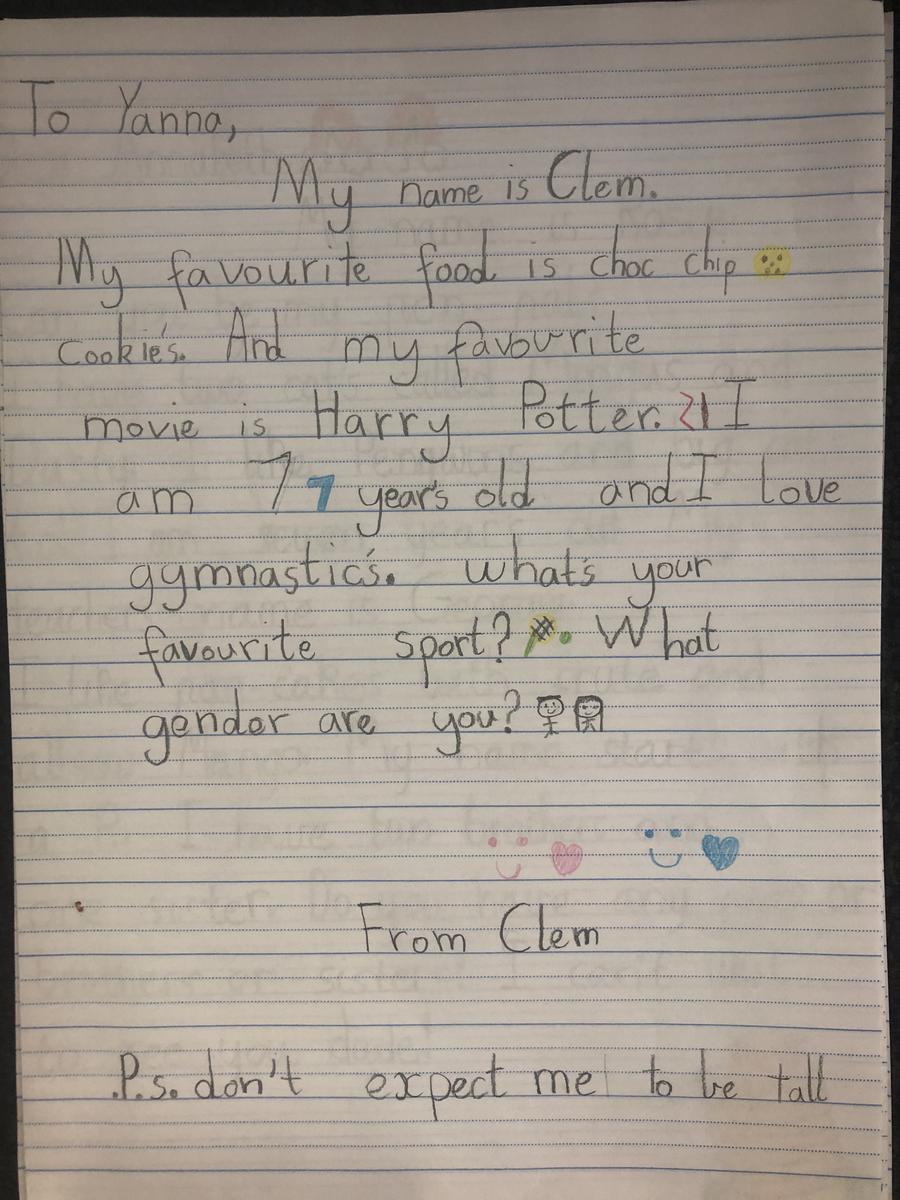 To Yanna,
My name is Clem.
My favourite food is choc chip
cookie's. And my favourite
movie is Harry Potter. I
am 7 7 year's old and I love
gymnastic's. what's your
favourite sport? What
gender are you?
From Clem
P.s. don't expect me to be tall